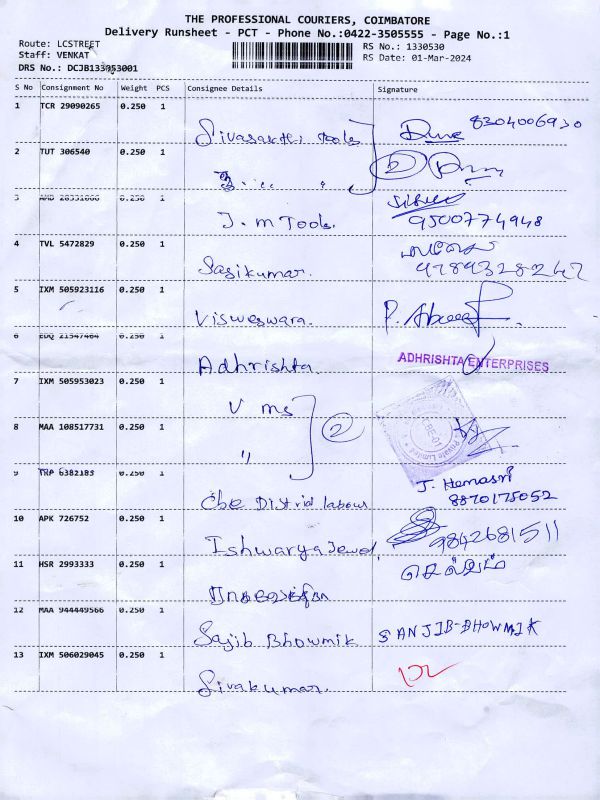 THE PROFESSIONAL COURIERS, COIMBATORE
Delivery Runsheet - PCT - Phone No.:0422-3505555 - Page No.:1
Route: LCSTREET
Staff: VENKAT
DRS No.: DCJB133053001
RS No.: 1330530
RS Date: 01-Mar-2024
S No Consignment No Weight PCS Consignee Details Signature
1 TCR 29090265 0.250 1 Sivasakthi Tools 8304006930
2 TUT 306540 0.250 1 2
3 0.250 1 J.M Tools. 9500774948
4 TVL 5472829 0.250 1 Sasikumar.
5 IXM 505923116 0.250 1 Visweswara.
6 EDQ 21547464 0.250 1 Adhrishta. ADHRISHTA ENTERPRISES
7 IXM 505953023 0.250 1 V ms
8 MAA 108517731 0.250 1 " 2 Private Limited
9 TRP 6382185 0.250 1 Cbe District labour J. Hemasri
8870175052
10 APK 726752 0.250 1 Ishwarya Jewel. 9842681511
11 HSR 2993333 0.250 1
12 MAA 944449566 0.250 1 Sajib Bhowmik SANJIB-BHOWMIK
13 IXM 506029045 0.250 1 Sivakumar.